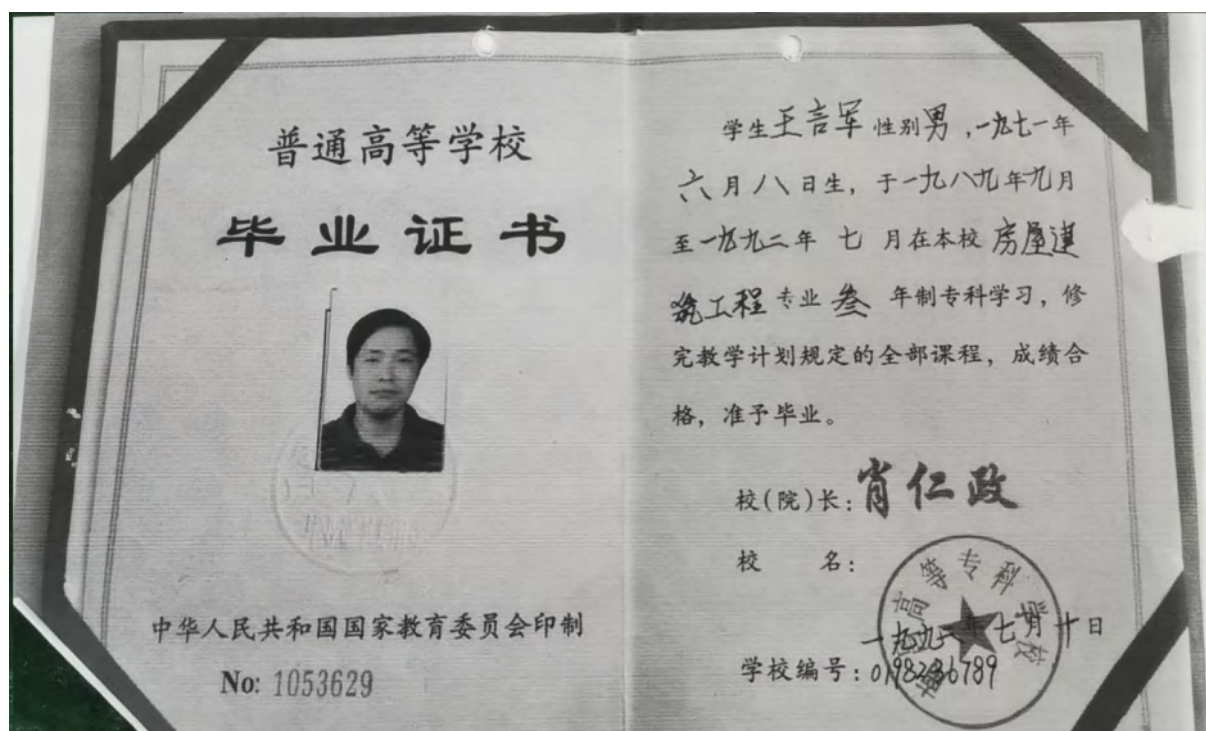 普通高等学校
毕业证书
中华人民共和国国家教育委员会印制
No: 1053629
学生王言军 性别男，一九七一年
六月八日生，于一九八九年九月
至一九九二年 七 月在本校 房屋建
筑工程 专业 叁 年制专科学习，修
完教学计划规定的全部课程，成绩合
格，准予毕业。
校(院)长：肖仁政
校 名：
高等专科学校
一九九二年七月十日
学校编号：